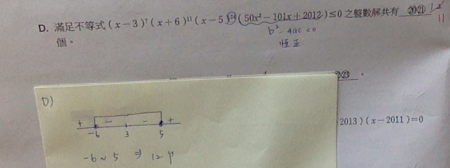 D. 滿足不等式 (x－3)⁷(x＋6)¹¹(x－5)(50x²－101x＋2012)≤0 之整數解共有
個。
b²-4ac<0
恆正
11
D)
+ - - +
-6 3 5
-6~5 ⇒ 12個
2013)(x－2011)=0